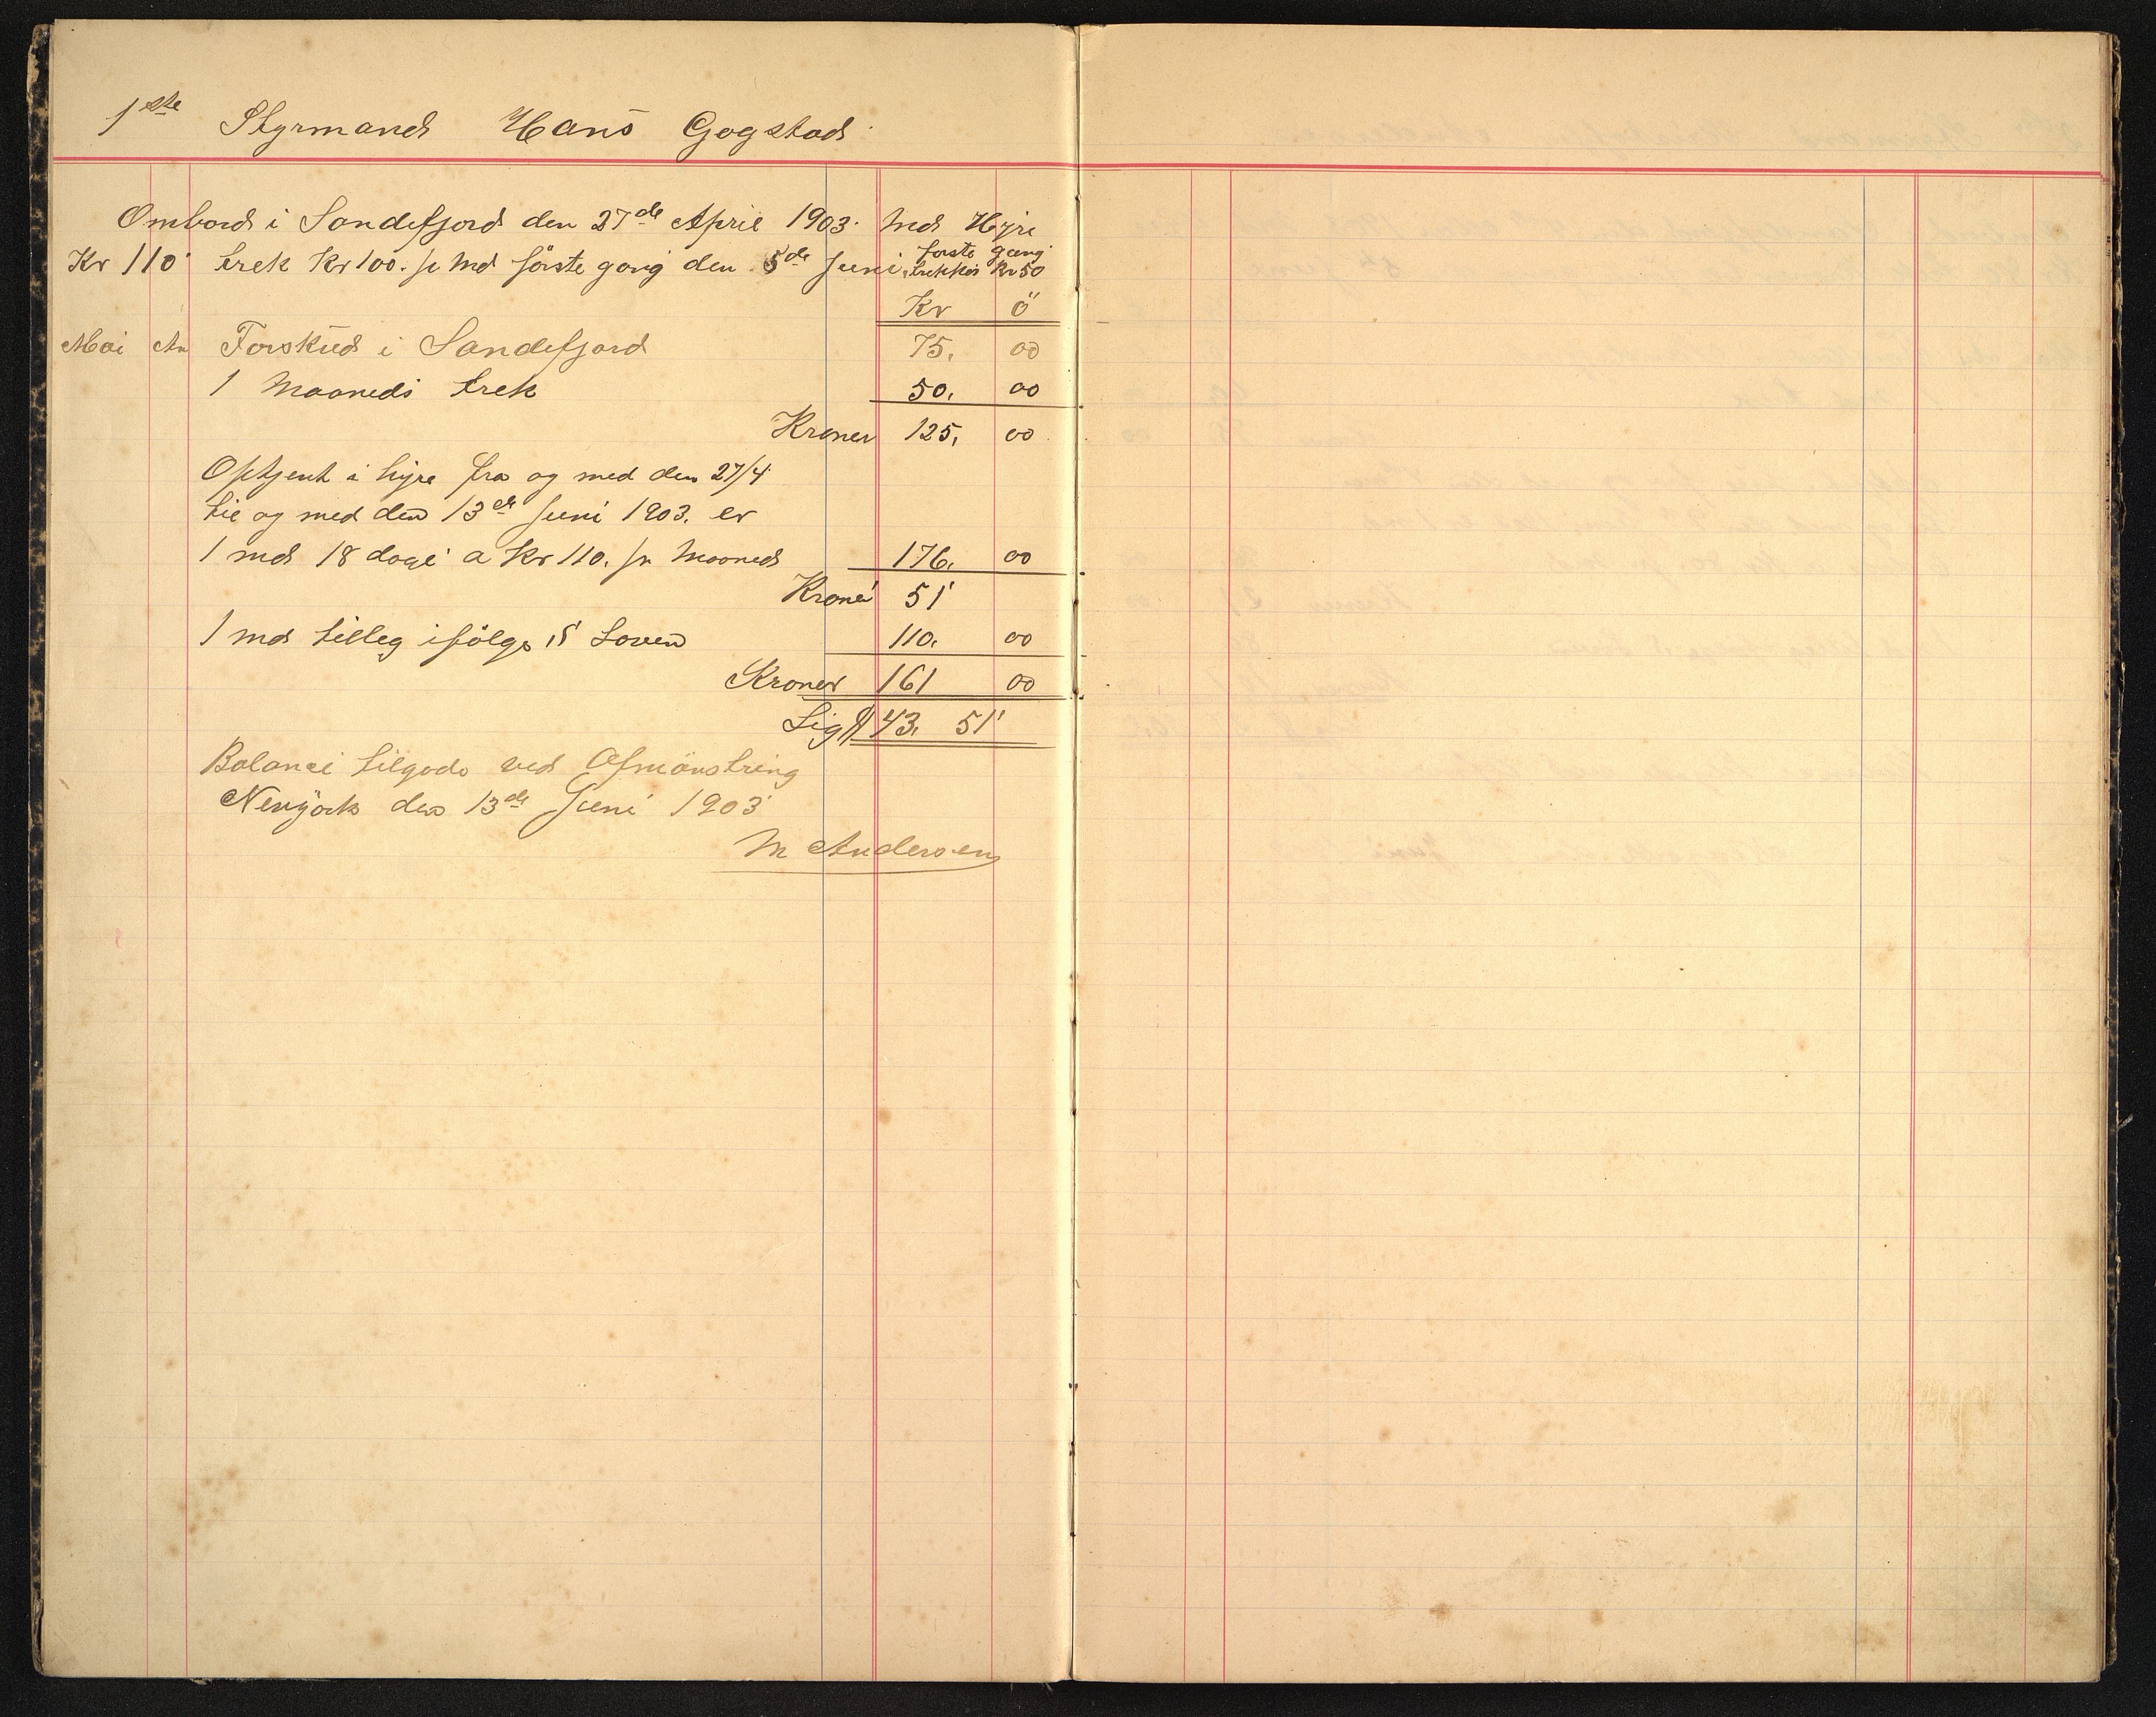 1ste Styrmand Hans Gogstad
Ombord i Sandefjord den 27de April 1903. Med Hyre
Kr 110 trek Kr 100. pr Md förste gang den 5de Juni, förste gang trekkes Kr 50
Kr ö
Mai An Forskud i Sandefjord 75. 00
1 Maaneds trek 50. 00
Kroner 125. 00
Optjent i hyre fra og med den 27/4
til og med den 13de Juni 1903. er
1 md 18 dage a Kr 110. pr Maaned 176. 00
Kroner 51
1 md tilleg ifölge § Loven 110. 00
Kroner 161 00
Lig $ 43. 51
Balance tilgode ved Afmönstring
Newyork den 13de Juni 1903
M Andersen